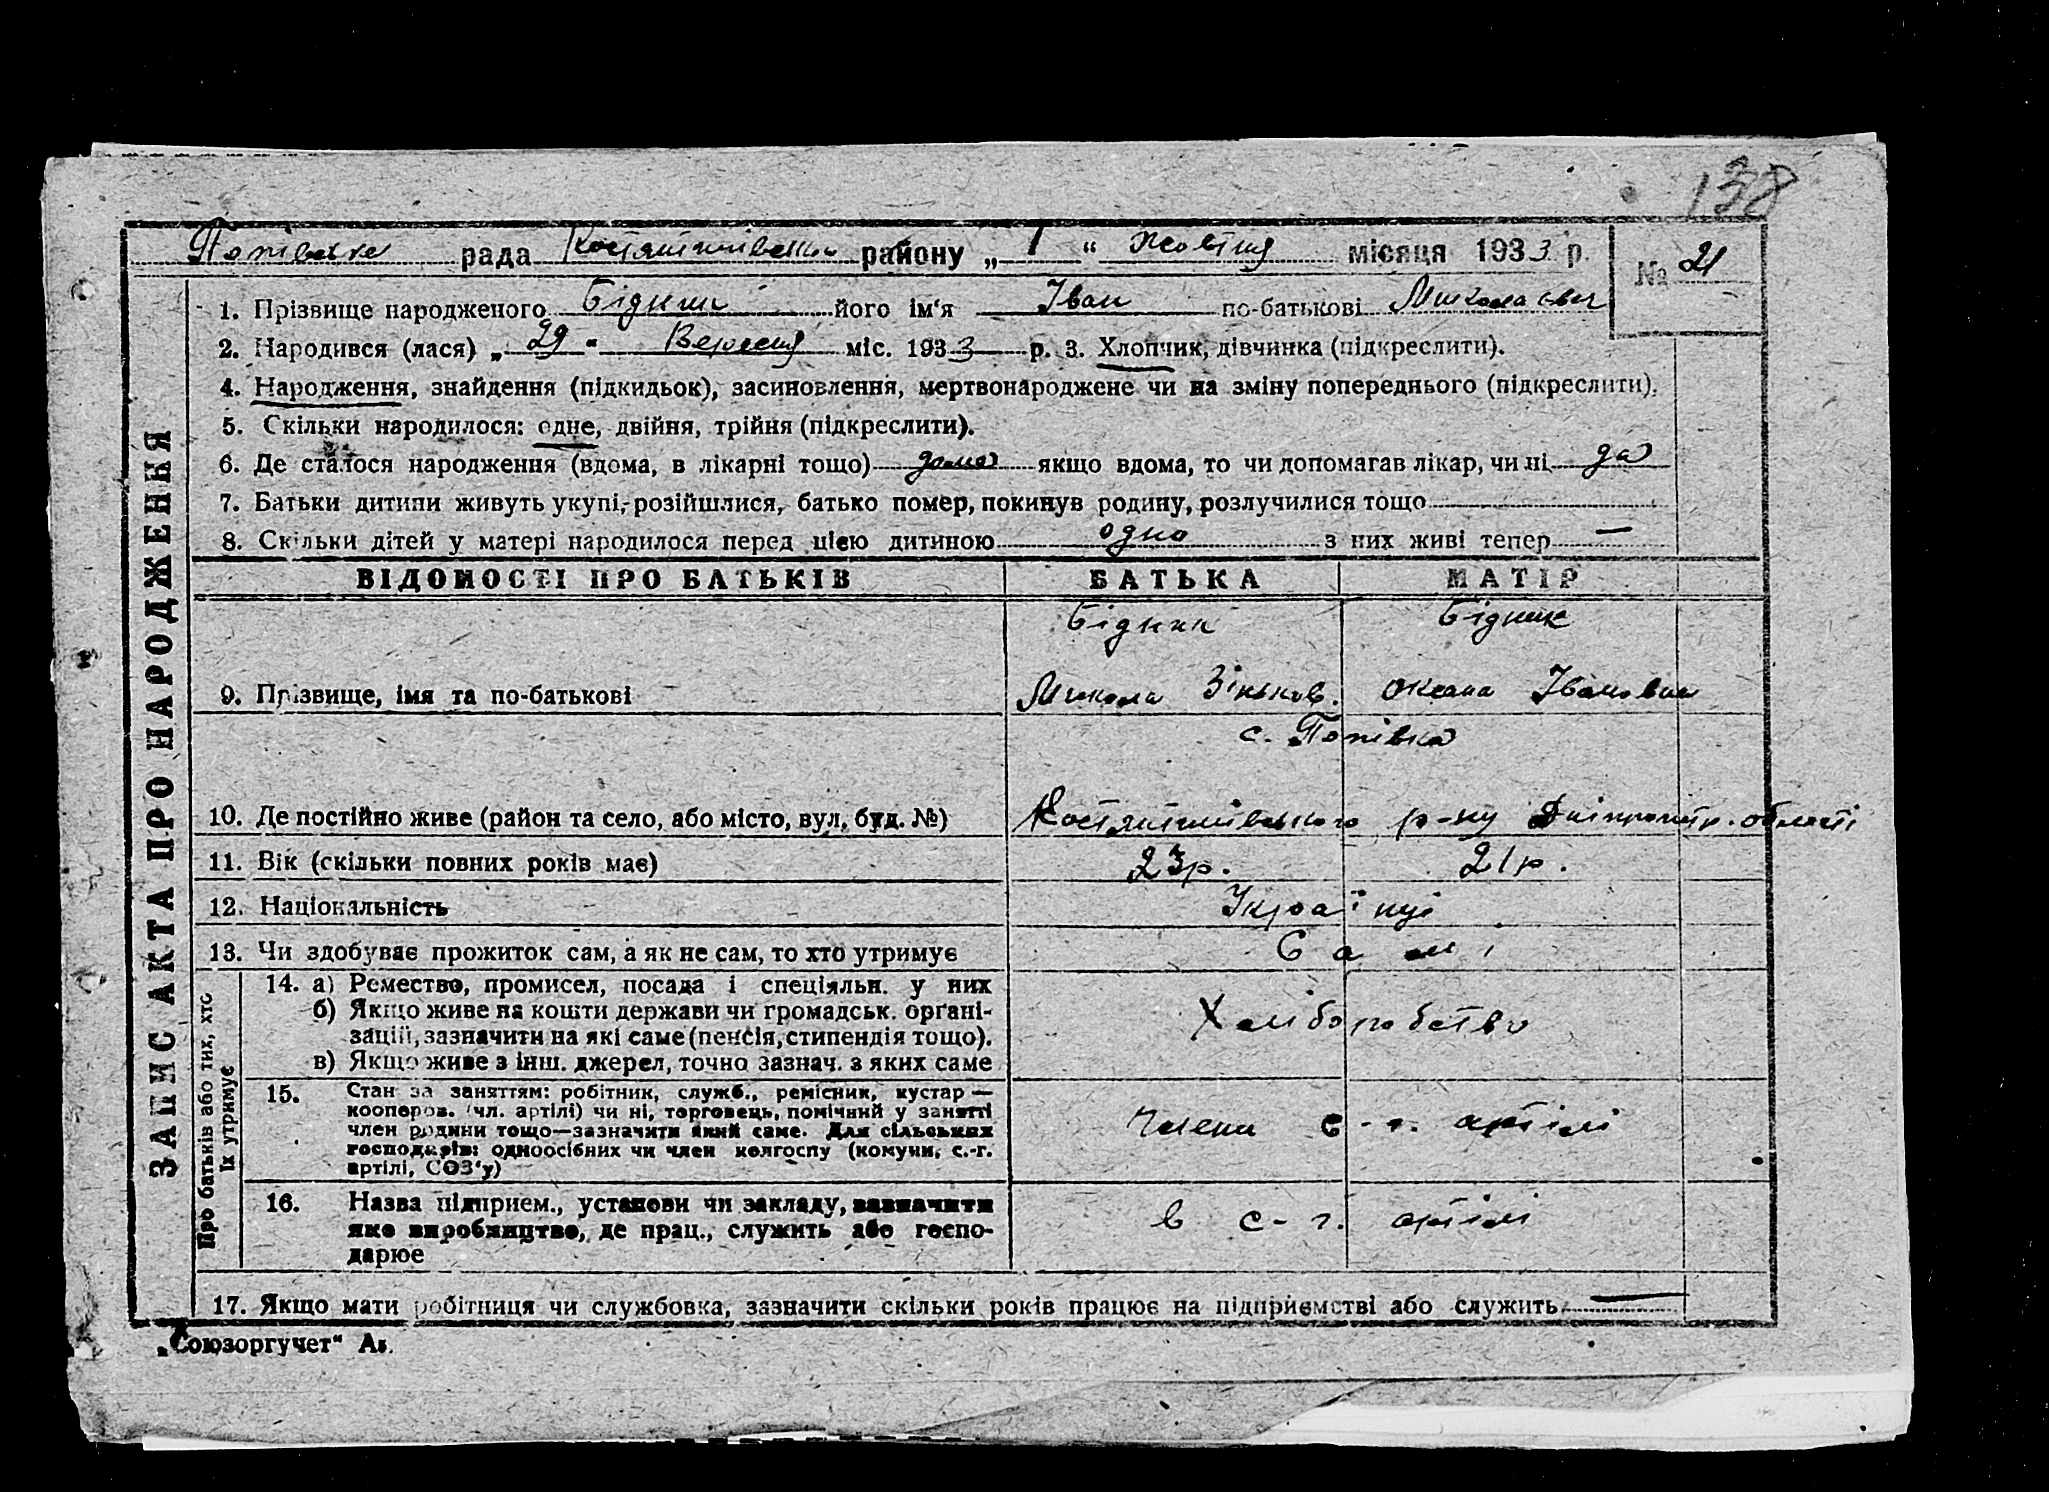 138
Попівська рада Костянтинівськ району „ 1 “ Жовтня місяця 1933 р.
№ 21
1. Прізвище народженого Бідник його ім‘я Іван по-батькові Миколаєвич
2. Народився (лася) „ 29 “ Вересня міс. 1933 р. 3. Хлопчик, дівчинка (підкреслити).
4. Народження, знайдення (підкидьок), засиновлення, мертвонароджене чи на зміну попереднього (підкреслити).
5. Скільки народилося: одне, двійня, трійня (підкреслити).
6. Де сталося народження (вдома, в лікарні тощо) дома якщо вдома, то чи допомагав лікар, чи ні да
7. Батьки дитини живуть укупі, розійшлися, батько помер, покинув родину, розлучилися тощо
8. Скільки дітей у матері народилося перед цією дитиною одно з них живі тепер —
ВІДОМОСТІ ПРО БАТЬКІВ БАТЬКА МАТІР
Бідник Бідник
9. Прізвище, імя та по-батькові Микола Зіньков. Оксана Івановна
с. Попівка
10. Де постійно живе (район та село, або місто, вул. буд. №) Костянтинівського р-ну Дніпропетр. області
11. Вік (скільки повних років має) 23 р. 21 р.
12. Національність Українці
13. Чи здобуває прожиток сам, а як не сам, то хто утримує Самі
14. а) Ремество, промисел, посада і спеціяльн. у них
б) Якщо живе на кошти держави чи громадськ. органі-
зацій, зазначити на які саме (пенсія, стипендія тощо).
Хліборобство
в) Якщо живе з інш. джерел, точно зазнач. з яких саме
15. Стан за заняттям: робітник, служб., ремісник, кустар —
кооперов. (чл. артілі) чи ні, торговець, помічний у занятті
член родини тощо—зазначити який саме. Для сільських
господарів: одноосібних чи член колгоспу (комуни, с.-г.
артілі, СОЗ‘у)
Члени с-г. артілі
16. Назва підприєм., установи чи закладу, зазначити
яке виробництво, де прац., служить або госпо-
дарює
в с-г. артілі
17. Якщо мати робітниця чи службовка, зазначити скільки років працює на підприємстві або служить —
ЗАПИС АКТА ПРО НАРОДЖЕННЯ
Про батьків або тих, хто
їх утримує
„Союзоргучет“